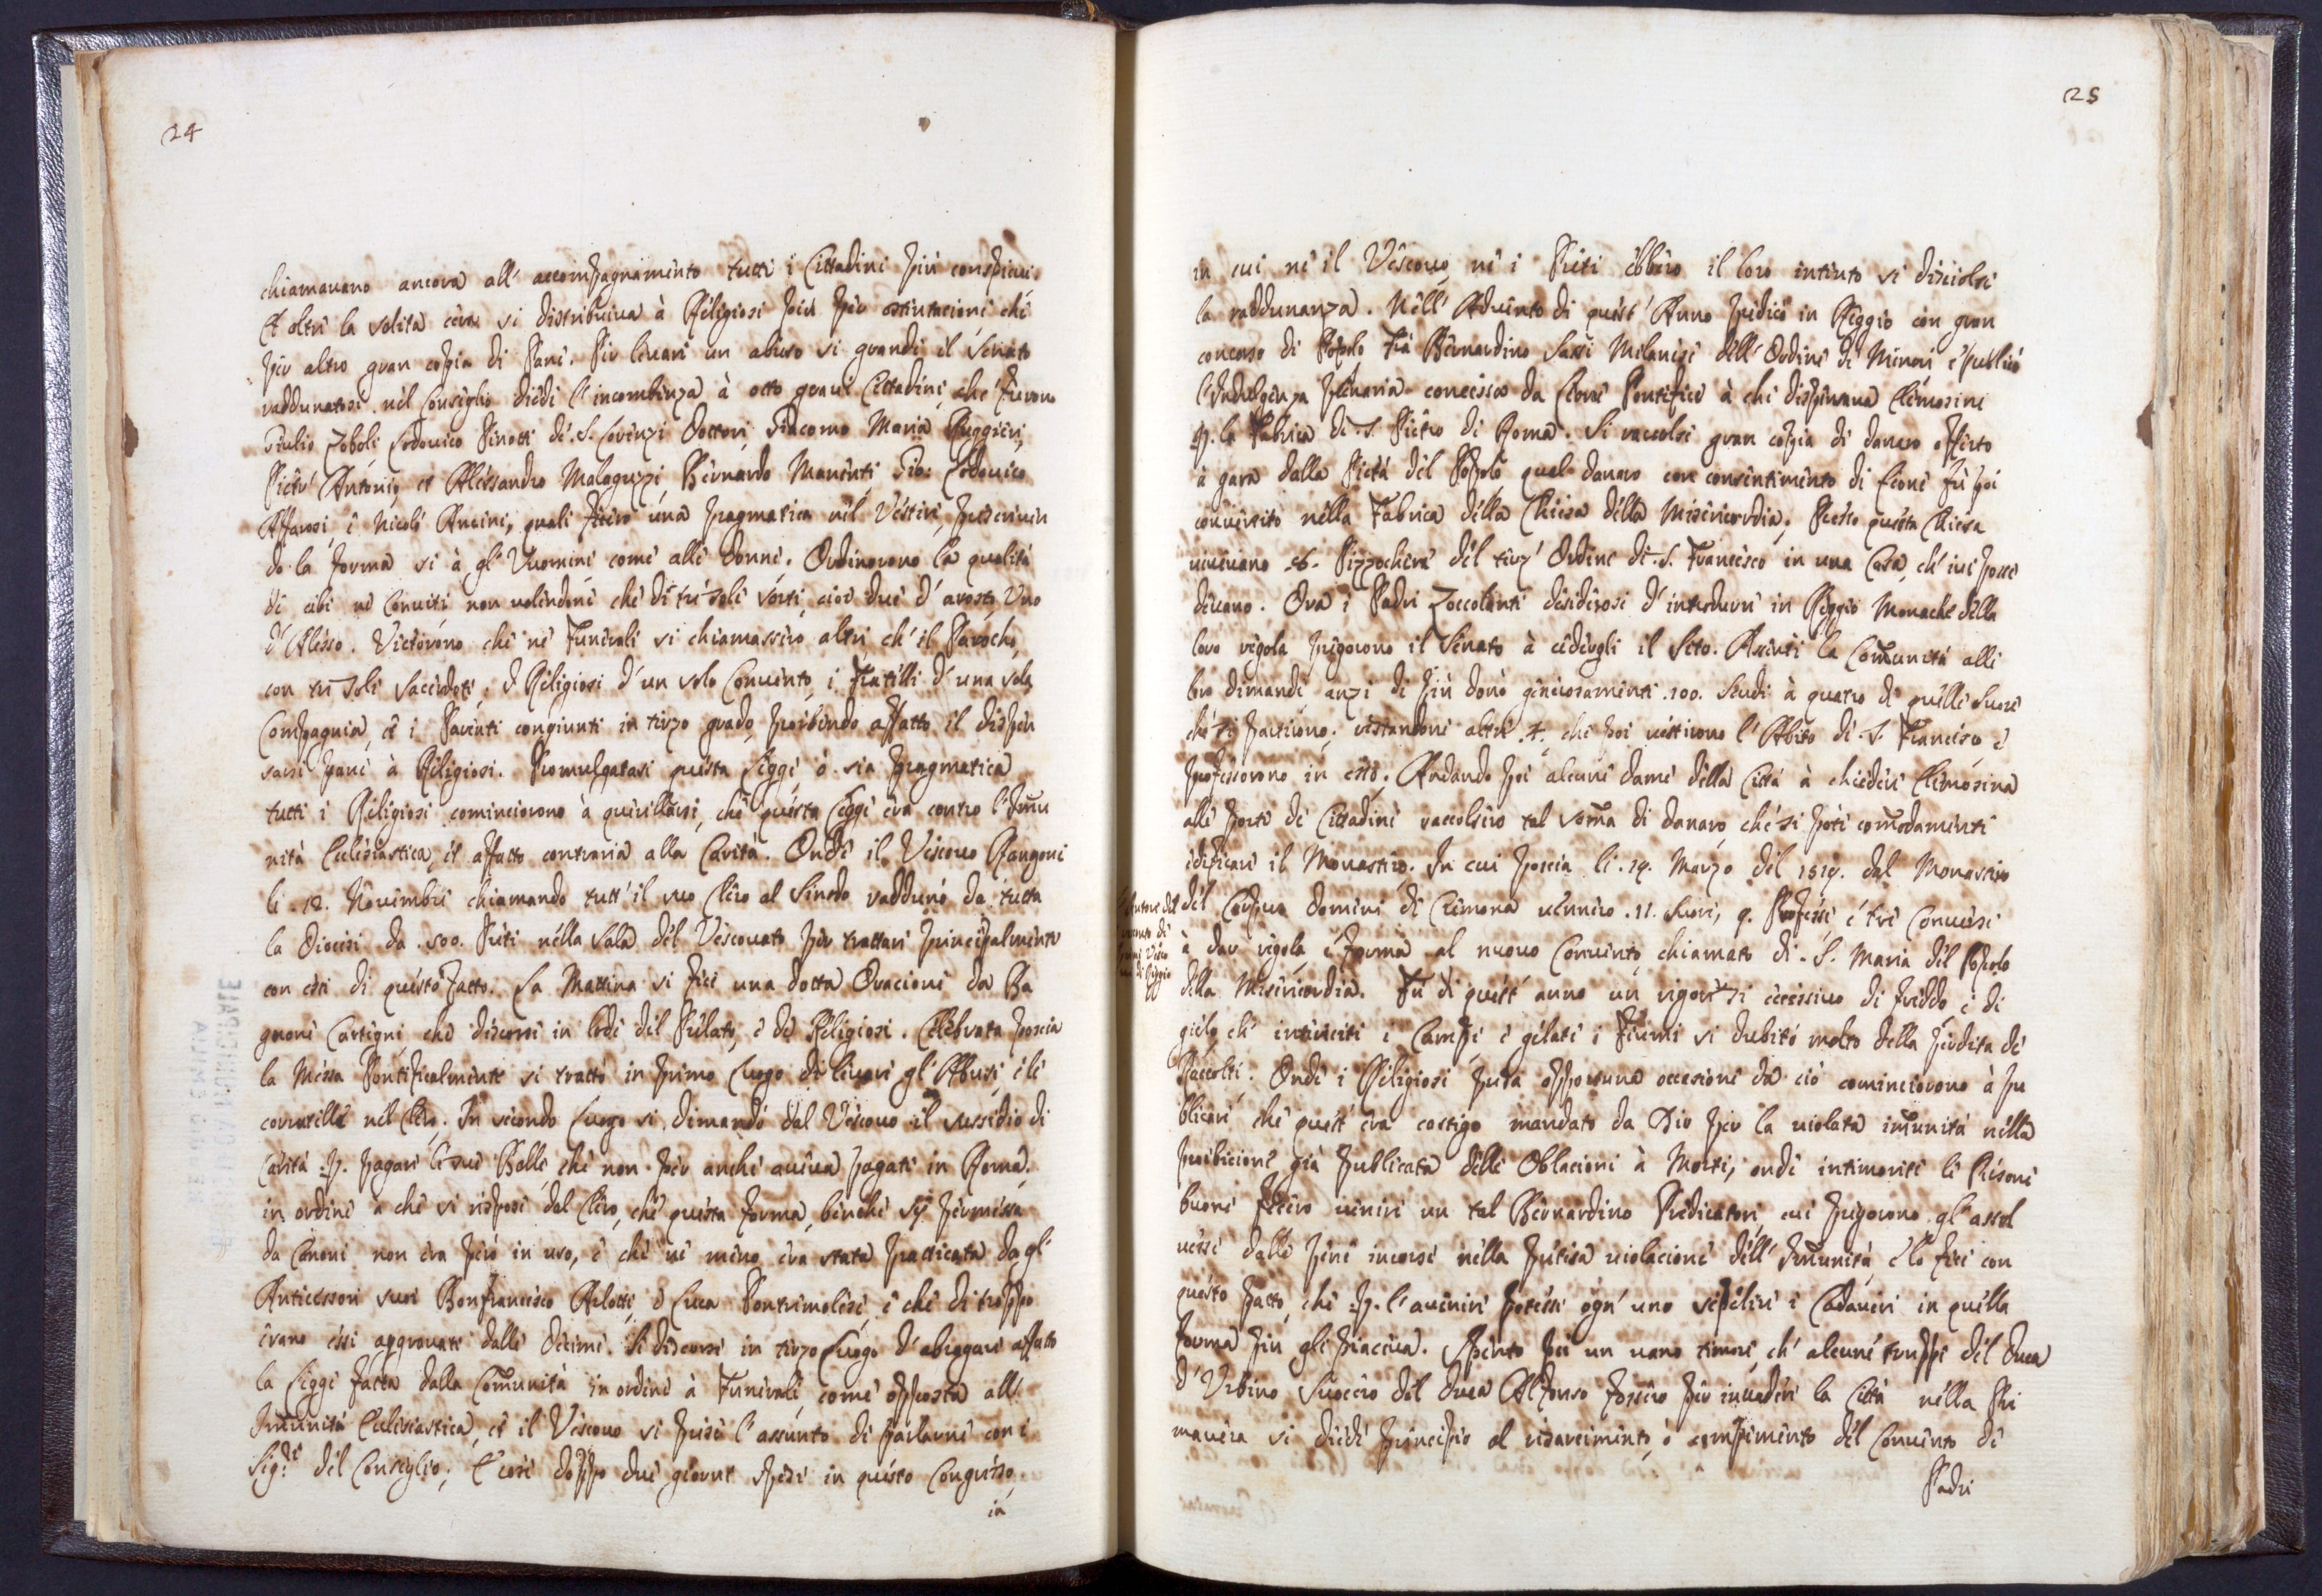 24
chiamauano ancora all' accompagnamento tutti i Cittadini più conspicui,
Et oltre la solita cera si distribuiua à Religiosi più per ostentacione che
per altro gran copia di Pane. Per leuare un abuso si grande il Senato
raddunatosi nel Consiglio diede l'incombenza à otto graui Cittadini, che furono
Giulio Zoboli, Lodouico Pinotti de S. Lorenzi Dottori, Giacomo Maria Ruggieri,
Pietr' Antonio, et Alessandro Malaguzzi, Bernardo Manenti, Gio: Lodouico
Affarosi, e Nicolò Ancini, quali fecero una pragmatica nel Vestire, prescriuen
do la forma si à gl' Vuomini come alle Donne. Ordinorono la qualità
di cibi ne Conuiti non uolendone che di tre soli sorti, cioè due d' arosto Uno
d' Alesso. Vietorono che ne Funerali si chiamassero altri, ch' il Parocho,
con tre soli Sacerdoti, i Religiosi d' un solo Conuento, i Fratelli d' una sola
Compagnia, et i Parenti congiunti in terzo grado, proibendo affatto il dispen
sarsi pane à Religiosi. Promulgatasi questa Legge, ò sia pragmatica
tutti i Religiosi cominciorono à querellarsi, che questa Legge era contro l' Imu
nità Eclesiastica, et affatto contraria alla Carità. Onde il Vescouo Rangoni
li .12. Nouembre chiamando tutt' il suo Clero al Sinodo raddunò da tutta
la Diocesi da .500. Preti nella Sala del Vescouato per trattare principalmente
con essi di questo fatto. La Mattina si fece una dotta Oracione da Ba
gnone Cartegni, che discorse in lode del Prelato, e de Religiosi. Celebrata poscia
la Messa Pontificalmente si trattò in primo Luogo di leuare gl' Abusi, e le
corrutelle nel Clero. In secondo Luogo si dimandò dal Vescouo il sussidio di
Carità p. pagare le sue Bolle, che non per anche aueua pagate in Roma,
in ordine a che si rispose dal Clero, che questa forma, benche sij permessa
da Canoni non era però in uso, e che ne meno era stata pratticata da gl'
Antecessori suoi Bonfrancesco Arlotti, e Luca Pontremolese, e che di troppo
erano essi aggrauati dalle Decime. Si discorse in terzo Luogo d' abrogare affatto
la Legge fatta dalla Comunità in ordine à Funerali, come opposta all'
Immunità Eclesiastica, et il Vescouo si prese l' assunto di parlarne con i
Sig:ri del Consiglio; E così doppo due giorni spesi in questo Congresso,
in
25
in cui ne il Vescouo, ne i Preti ebbero il loro intento si disciolse
la raddunanza. Nell' Aduento di quest' Anno predicò in Reggio con gran
concorso di Popolo Frà Bernardino Sassi Milanese dell' Ordine de Minori e publicò
l'Indulgenza plenaria concessa da Leone Pontefice à chi dispensaua Elemosine
p. la Fabrica di S. Pietro di Roma. Si raccolse gran copia di danaro offerto
à gara dalla Pietà del Popolo, qual danaro con consentimento di Leone fù poi
conuertito nella Fabrica della Chiesa della Misericordia. Presso questa Chiesa
uiueuano .8. Pizzochere del terz' Ordine di S. Francesco in una Casa, ch' iui posse
deuano. Ora i Padri Zoccolanti desiderosi d' introdurre in Reggio Monache della
loro regola pregorono il Senato à cedergli il Sito. Assentì la Comunità alle
loro dimande, anzi di più donò generosamente .100. Scudi à quatro di quelle Suore
che si partirono; restandone altre .4. che poi uestirono l' Abito di S. Francesco e
professorono in esso. Andando poi alcune dame della Città à chiedere Elemosina
alle porte de Cittadini raccolsero tal soma di danaro, che si potè comodamente
edificare il Monastero. In cui poscia li .19. Marzo del 1519. dal Monastero
del Corpus Domini di Cremona uennero .11. Suore, 9. Professe, e tre Conuerse
à dar regola, e forma al nuouo Conuento, chiamato di S. Maria del Popolo
della Misericordia. Fù di quest' anno un rigore si eccessiuo di freddo, e di
gielo, ch' inteneriti i Campi e gelati i Fiumi si dubitò molto della perdita de
Raccolti. Onde i Religiosi presa opportuna occasione da ciò cominciorono à pu
blicare, che quest' era castigo mandato da Dio per la uiolata imunità nella
proibicione già publicata delle Oblacioni à Morti; onde intimorite le Persone
buone fecero uenire un tal Bernardino Predicatore, cui pregorono gl' assol
uesse dalle pene incorse nella pretesa uiolacione dell' Imunità, e lo fece con
questo patto, che p. l' auenire potesse ogn' uno sepelire i Cadaueri in quella
forma più gli piaceua. Spento poi un uano timore, ch' alcune truppe del Duca
d' Urbino Suocero del Duca Alfonso fossero per inuadere la Città nella Pri
mauera si diede principio al risarcimento, ò compimento del Conuento de
Padri